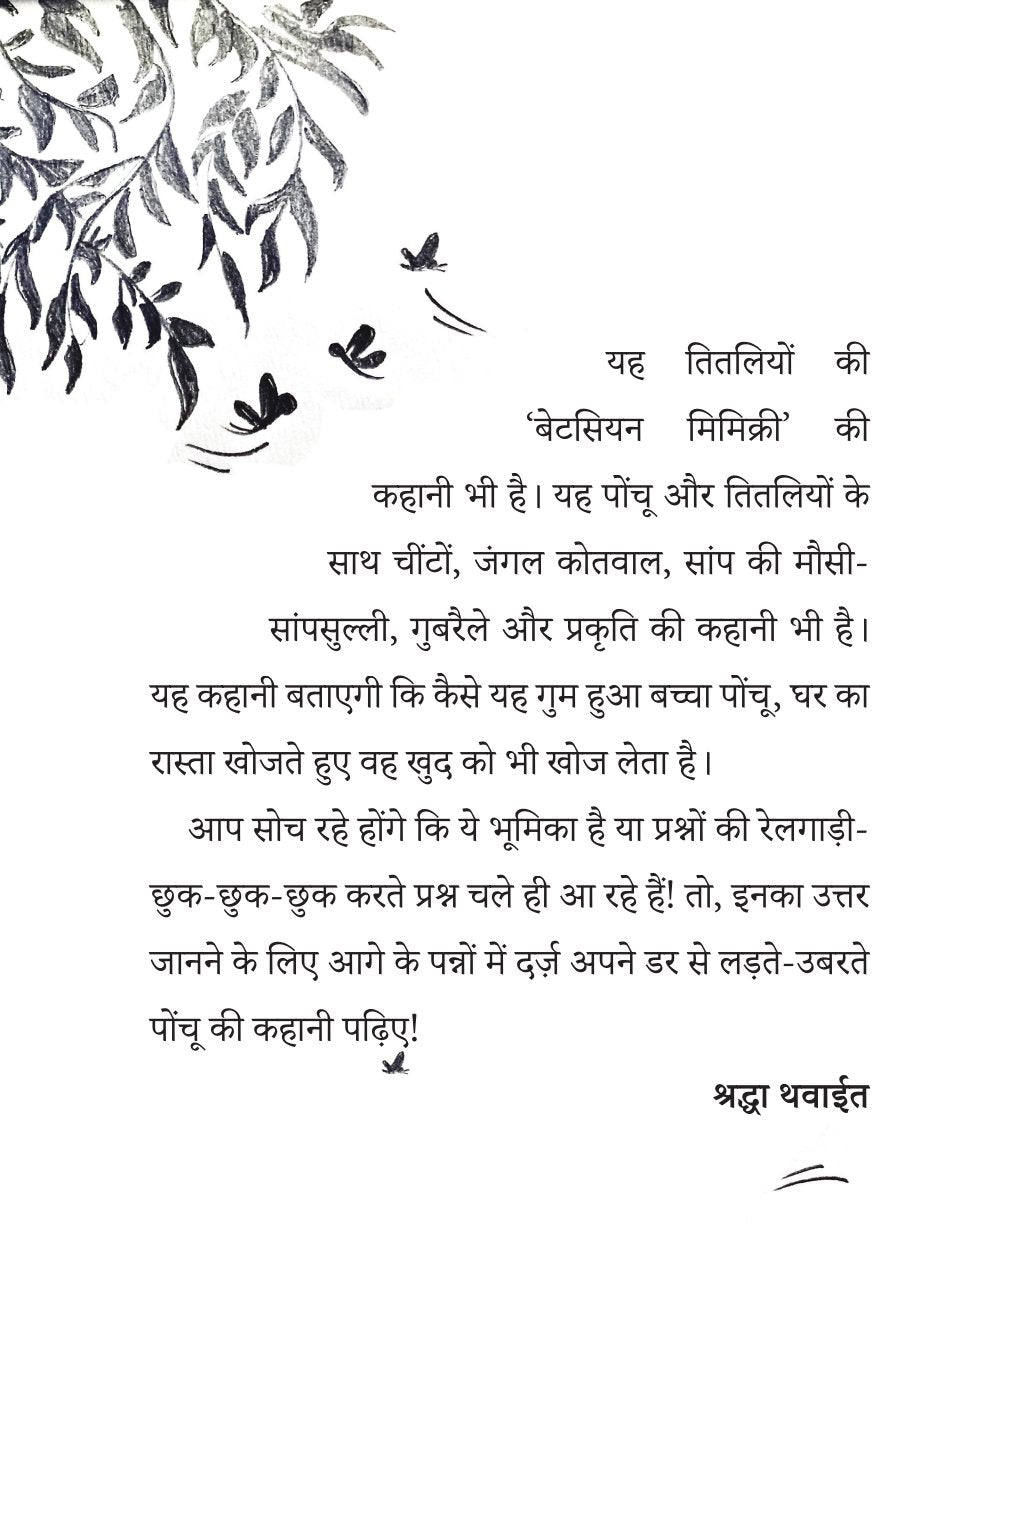 यह तितलियों की
‘बेटसियन मिमिक्री’ की
कहानी भी है। यह पोंचू और तितलियों के
साथ चींटों, जंगल कोतवाल, सांप की मौसी-
सांपसुल्ली, गुबरैले और प्रकृति की कहानी भी है।
यह कहानी बताएगी कि कैसे यह गुम हुआ बच्चा पोंचू, घर का
रास्ता खोजते हुए वह खुद को भी खोज लेता है।
आप सोच रहे होंगे कि ये भूमिका है या प्रश्नों की रेलगाड़ी-
छुक-छुक-छुक करते प्रश्न चले ही आ रहे हैं! तो, इनका उत्तर
जानने के लिए आगे के पन्नों में दर्ज़ अपने डर से लड़ते-उबरते
पोंचू की कहानी पढ़िए!
श्रद्धा थवाईत